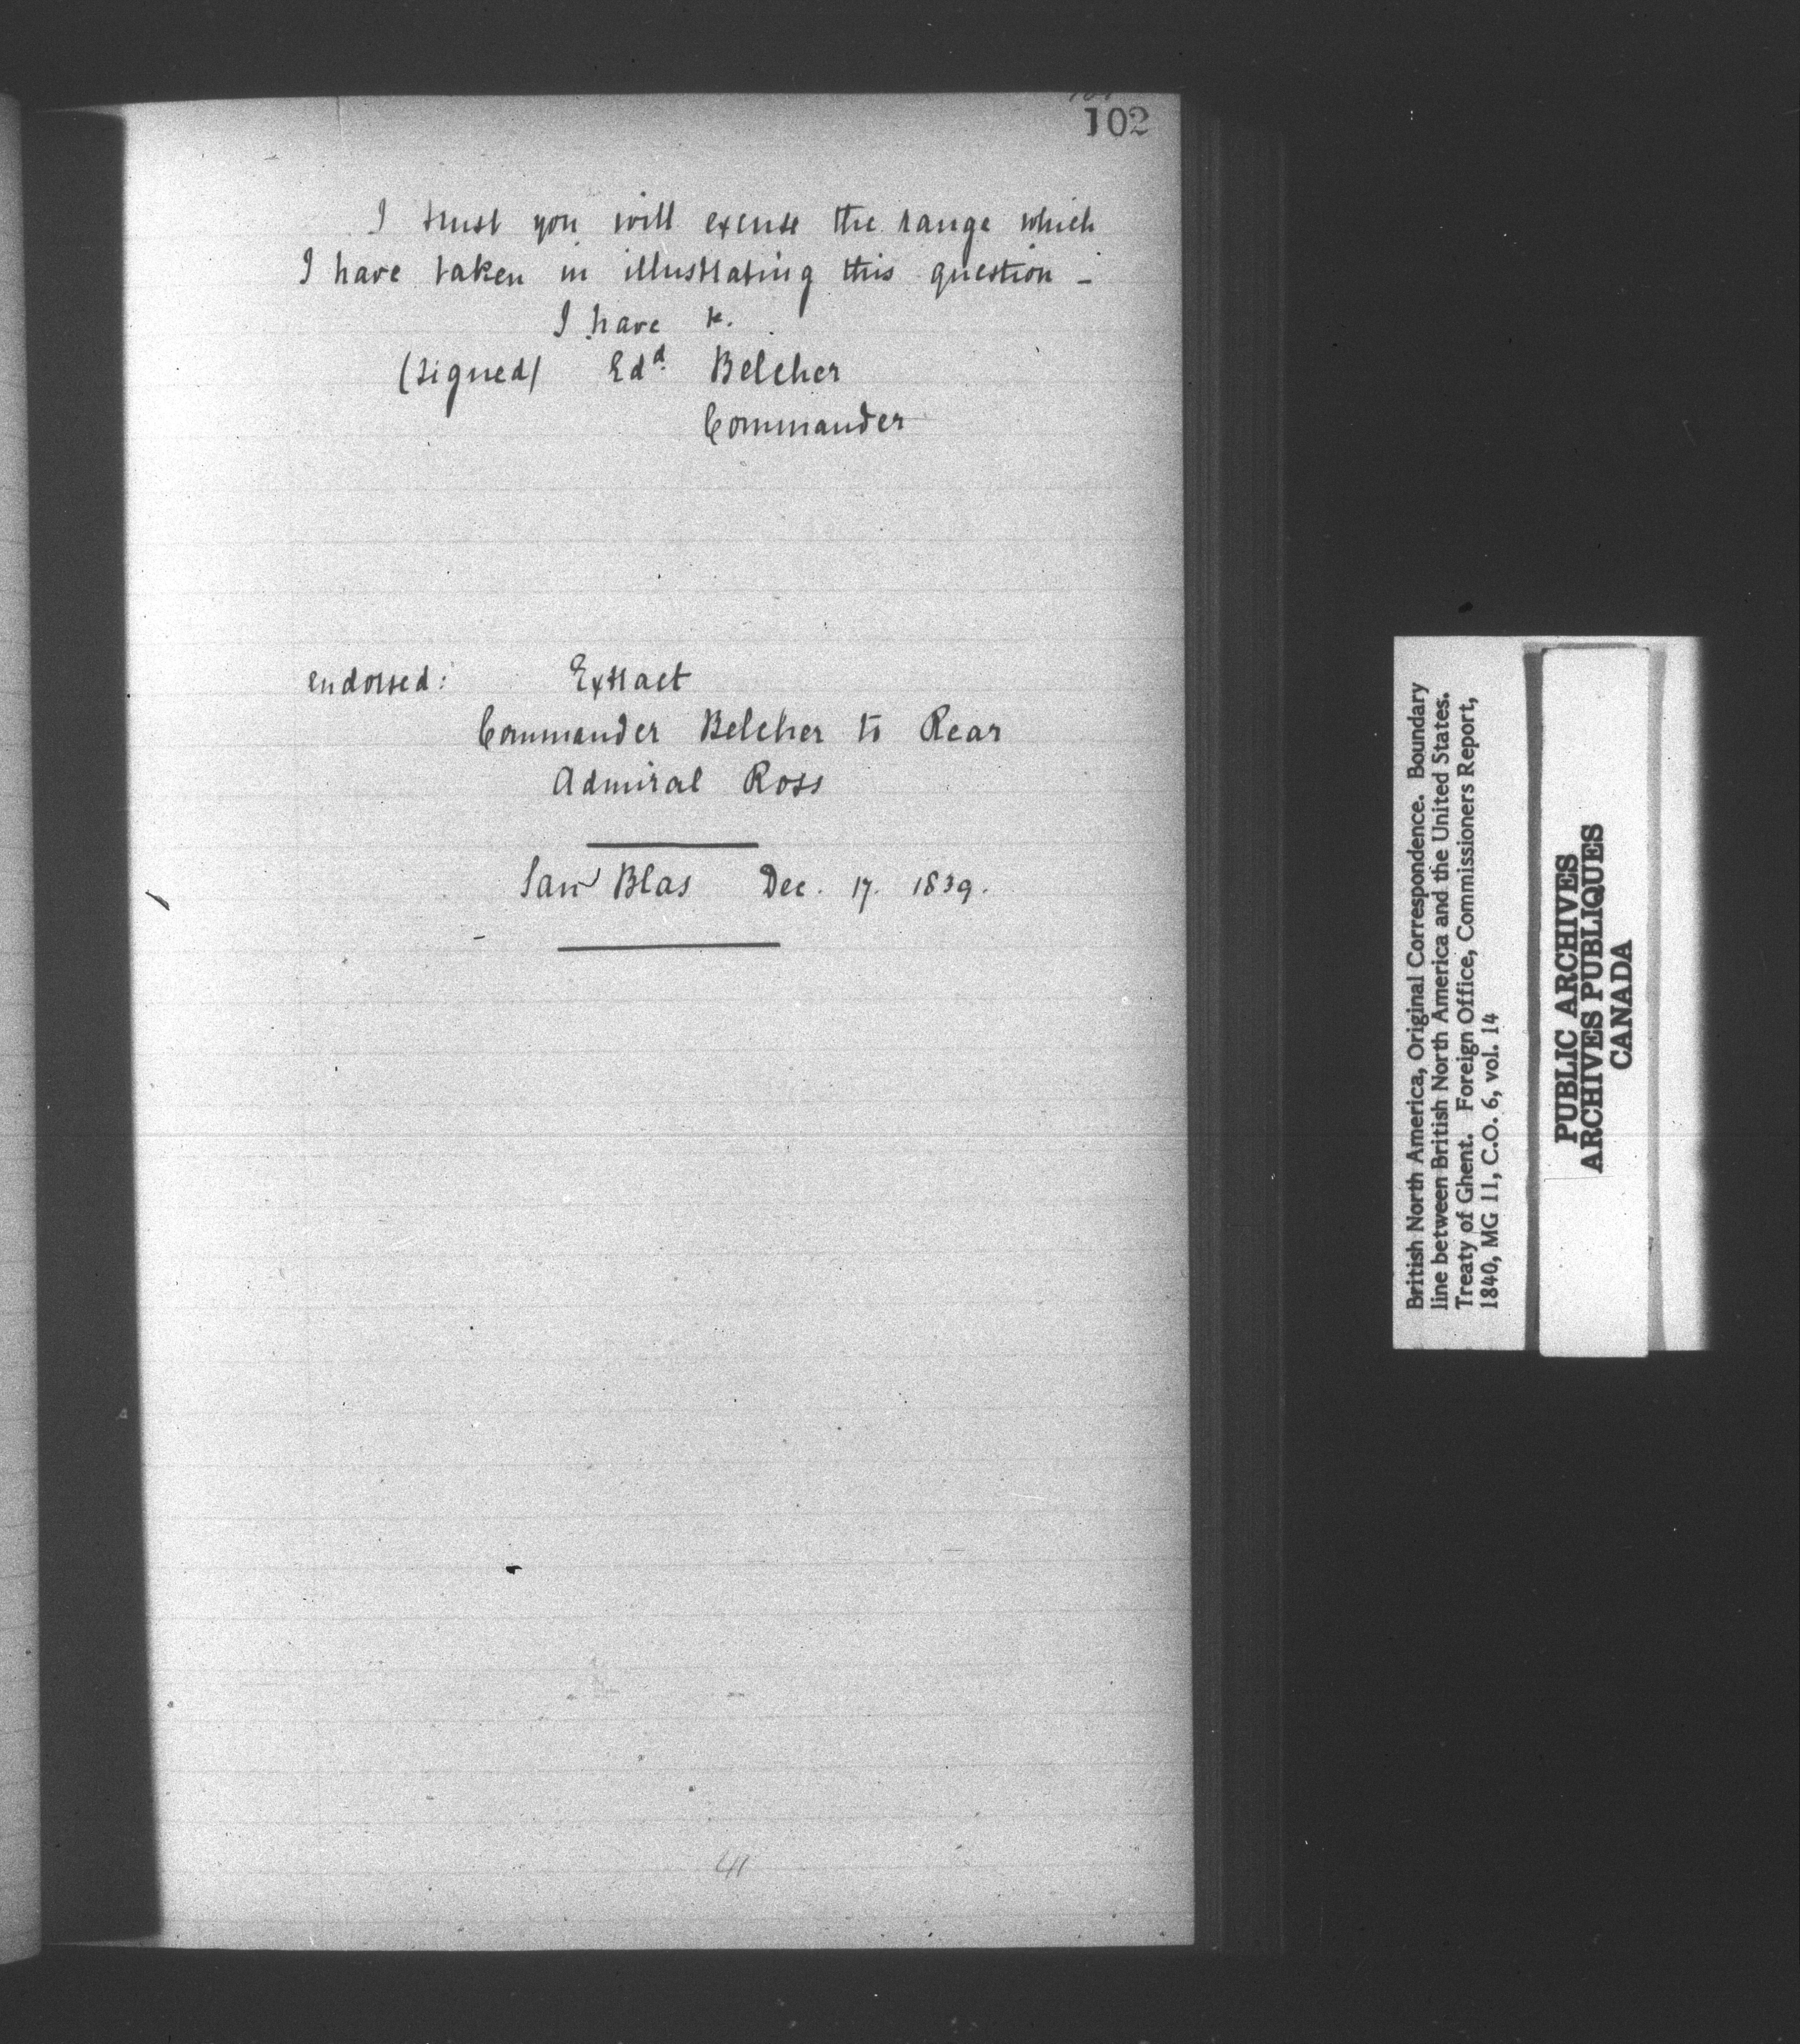 102
I trust you will excuse the range which
I have taken in illustrating this question -
I have &c.
(signed) Edd. Belcher
Commander
endorsed: Extract
Commander Belcher to Rear
Admiral Ross
San Blas Dec. 17. 1839.
41
British North America, Original Correspondence. Boundary
line between British North America and the United States.
Treaty of Ghent. Foreign Office, Commissioners Report,
1840, MG 11, C.O. 6, vol. 14
PUBLIC ARCHIVES
ARCHIVES PUBLIQUES
CANADA